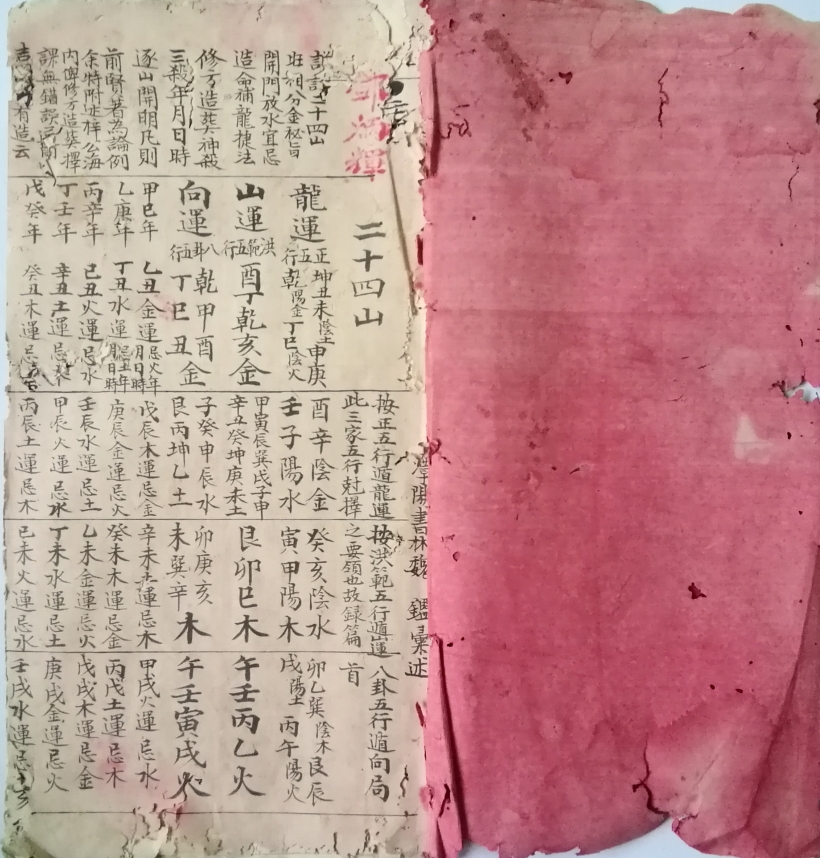 陽書林魏 鑑彙述
二十四山
按正五行遁龍運 按洪範五行遁山運 八卦五行遁向局
此三家五行尅擇之要領也故録篇首
二十四山
分金秘旨
開門放水宜忌
造命補龍捷法
修方造葬神殺
三殺年月日時
逐山開明凡則
前賢著為論例
余特附述梓公海
内俾修方造葬擇
課無錯誤
有造云
龍運 正五行 坤丑未陰土 申庚乾陽金 丁巳陰火
酉辛陰金 壬子陽水
癸亥陰水 寅甲陽木
卯乙巽陰木 艮辰戌陽土 丙午陽火
山運 洪範五行 酉丁乾亥金
甲寅辰巽戌子申辛丑癸坤庚未土
艮卯巳木
午壬丙乙火
向運 八卦五行 乾甲酉金 丁巳丑金
子癸申辰水 艮丙坤乙土
卯庚亥未巽辛木
午壬寅戌火
甲巳年 乙丑金運忌火年月日時 戊辰木運忌金 辛未土運忌木 甲戌火運忌水
乙庚年 丁丑水運忌土年月日時 庚辰金運忌火 癸未木運忌金 丙戌土運忌木
丙辛年 己丑火運忌水 壬辰水運忌土 乙未金運忌火 戊戌木運忌金
丁壬年 辛丑土運忌 甲辰火運忌水 丁未水運忌土 庚戌金運忌火
戊癸年 癸丑木運忌 丙辰土運忌木 巳未火運忌水 壬戌水運忌